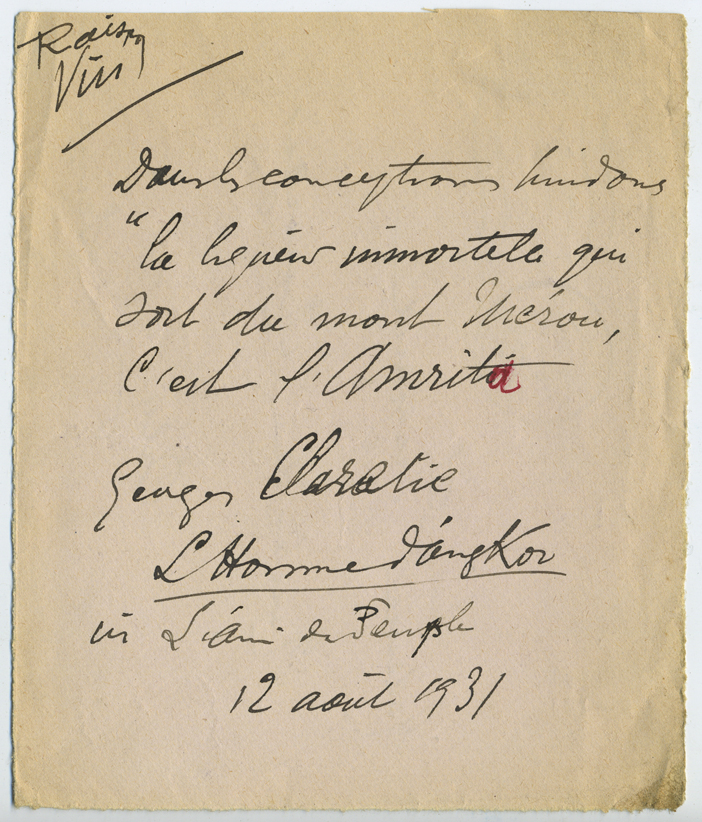 Raisin
Vin
Dans les conceptions hindous
"la liqueur immortelle qui
sort du mont Mérou,
c'est l'Amrita
Georges Claretie
L'Homme d'Angkor
in L'ami du Peuple
12 août 1931